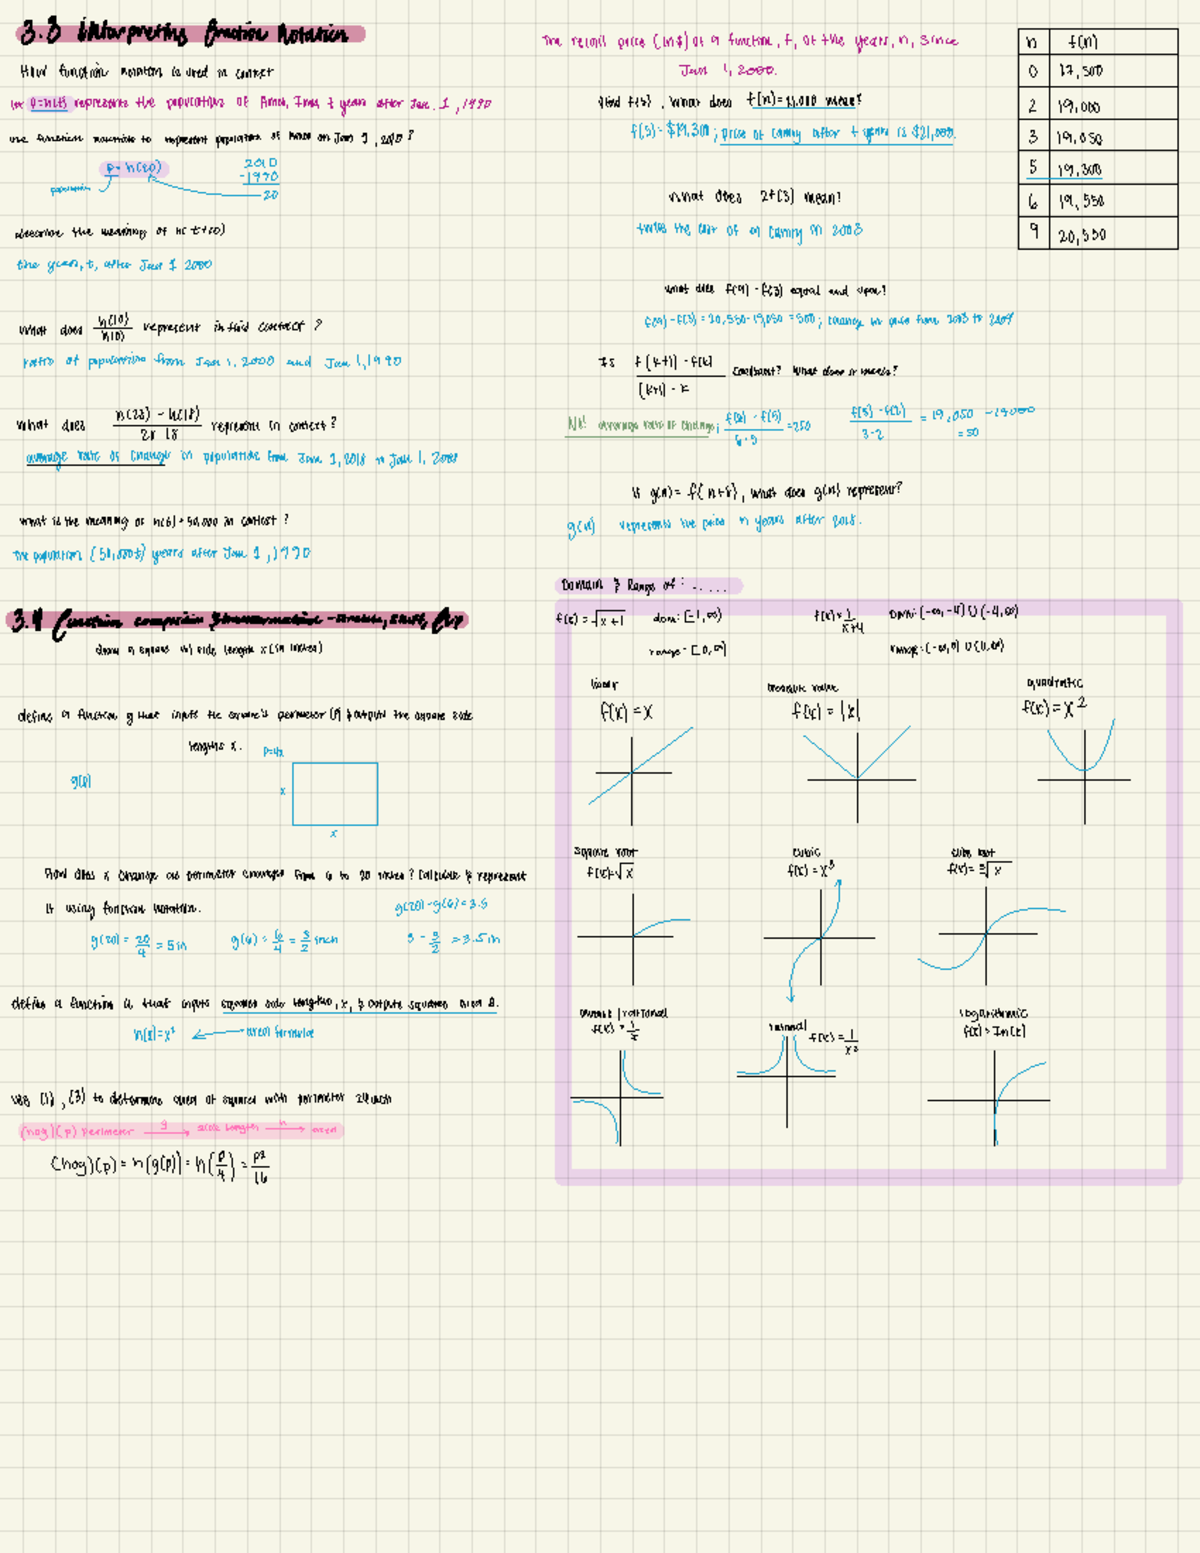 3.3 Interpreting Function Notation
How function notation is used in context
let P=n(t) represents the population of Ames, Iowa t years after Jan. 1, 1990
use function notation to represent population of Ames on Jan 1, 2010?
p = n(20)
population
2010
-1990
20
describe the meaning of n(t+10)
the years, t, after Jan 1 2000
What does n(10)/n(0) represent in this context?
ratio of population from Jan 1, 2000 and Jan 1, 1990
what does n(28) - n(18) / 28-18 represent in context?
average rate of change in population from Jan 1, 2018 to Jan 1, 2008
what is the meaning of n(6) + 50,000 in context?
the population (50,000) years after Jan 1, 1990
The retail price (in $) of a function, f, of the years, n, since
Jan 1, 2000.
find f(5). What does f(n)=21,000 mean?
f(5) = $19,300; price of camry after t years is $21,000.
n f(n)
0 17,500
2 19,000
3 19,050
5 19,300
6 19,550
9 20,550
What does 2f(3) mean?
twice the cost of a camry in 2003
what does f(9) - f(3) equal and
f(9) - f(3) = 20,550 - 19,050 = 500; change in price from 2003 to 2009
Is f(k+1) - f(k) / (k+1) - k constant? What does it mean?
No! average rate of change; f(6) - f(5) / 6-5 = 250
f(3) - f(2) / 3-2 = 19,050 - 19000
= 50
if g(n) = f(n+8), what does g(n) represent?
g(n) represents the price n years after 2018.
3.4 Function composition & transformation - stretch, shift, flip
draw a square w/ side length x (in inches)
define a function g that inputs the square's perimeter (P) & outputs the square side
lengths x.
P=4x
g(p)
x
x
How does x change as perimeter changes from 6 to 20 inches? Calculate & represent
it using function notation.
g(20) - g(6) = 3.5
g(20) = 20/4 = 5in
g(6) = 6/4 = 3/2 inch
3 - 3/2 = 3.5 in
define a function h that inputs squares side lengths, x, & outputs squares area A.
h(x) = x²
area formula
use (1), (3) to determine area of squared with perimeter 24 inch
(hog)(p) perimeter g side length h area
(hog)(p) = h(g(p)) = h(p/4) = p²/16
Domain & Range of: .....
f(x) = √x+1
dom: [-1,∞)
range = [0,∞)
f(x) = 1/x+4
Dom: (-∞,-4) U (-4,∞)
range: (-∞,0) U (0,∞)
linear
f(x) = x
absolute value
f(x) = |x|
quadratic
f(x) = x²
square root
f(x)=√x
cubic
f(x) = x³
cube root
f(x) = ³√x
rational
f(x) = 1/x
rational
f(x) = 1/x²
logarithmic
f(x) = ln(x)